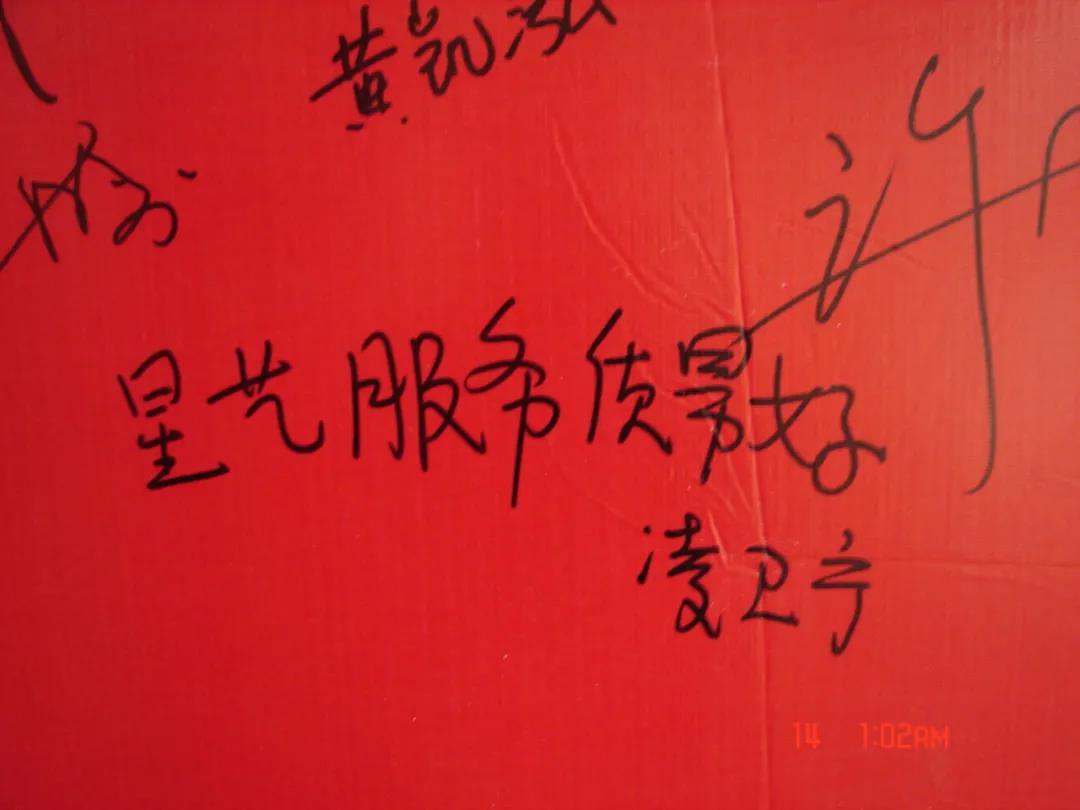 黄凯泓
许
星艺服务质量好
凌卫宁
14 1:02AM